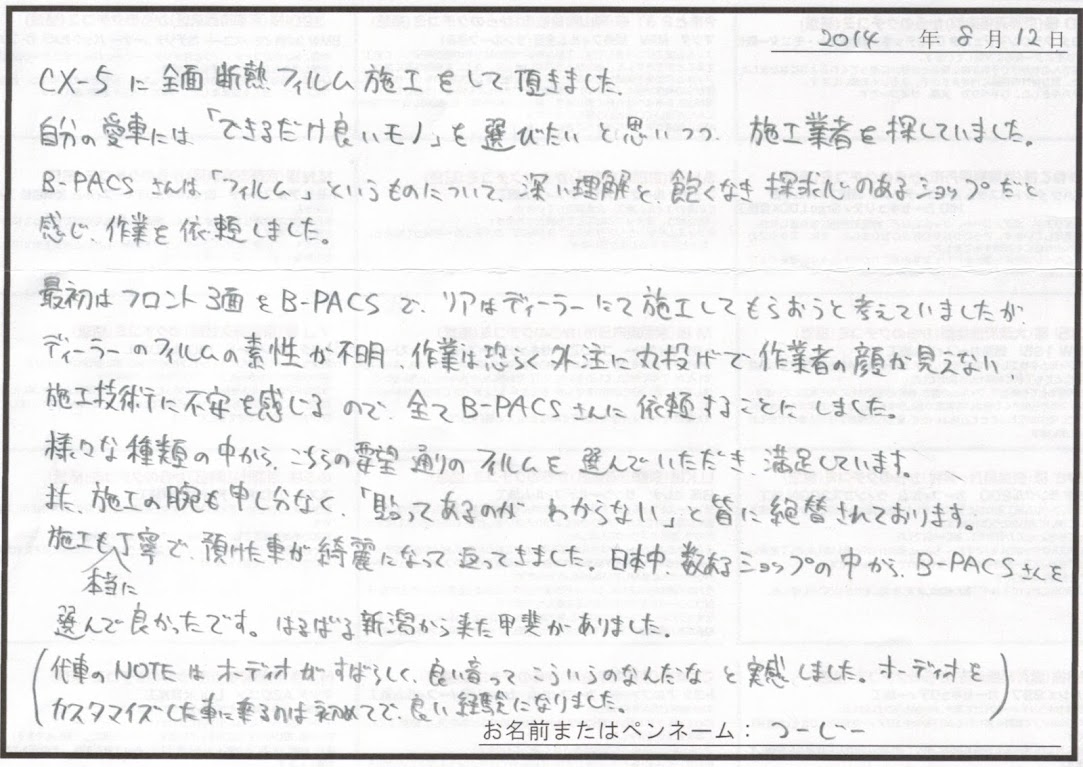 2014 年 8 月 12 日
CX-5 に 全面 断熱 フィルム 施工 をして 頂きました。
自分の愛車には「できるだけ良いモノ」を 選びたい と思いつつ、施工業者を 探していました。
B-PACS さんは「フィルム」というものについて、深い理解と、飽くなき 探求心のあるショップだと
感じ、作業を 依頼しました。
最初は フロント 3面を B-PACS で、リアはディーラーにて 施工してもらおうと 考えていましたが、
ディーラーのフィルムの素性が不明、作業は恐らく外注に丸投げで、作業者の顔が見えない、
施工技術に不安を感じるので、全て B-PACS さんに 依頼することに しました。
様々な種類の中から、こちらの要望通りのフィルムを 選んでいただき、満足しています。
また、施工の腕も申し分なく、「貼ってあるのが わからない」と皆に絶賛されております。
施工も本当に丁寧で、預けた車が綺麗になって返ってきました。日本中、数あるショップの中から、B-PACSさんを
選んで良かったです。はるばる新潟から来た甲斐がありました。
(代車のNOTEは オーディオがすばらしく、良い音ってこういうのなんだな、と 実感しました。オーディオを
カスタマイズした車に乗るのは初めてで、良い経験になりました。)
お名前またはペンネーム： つーじー